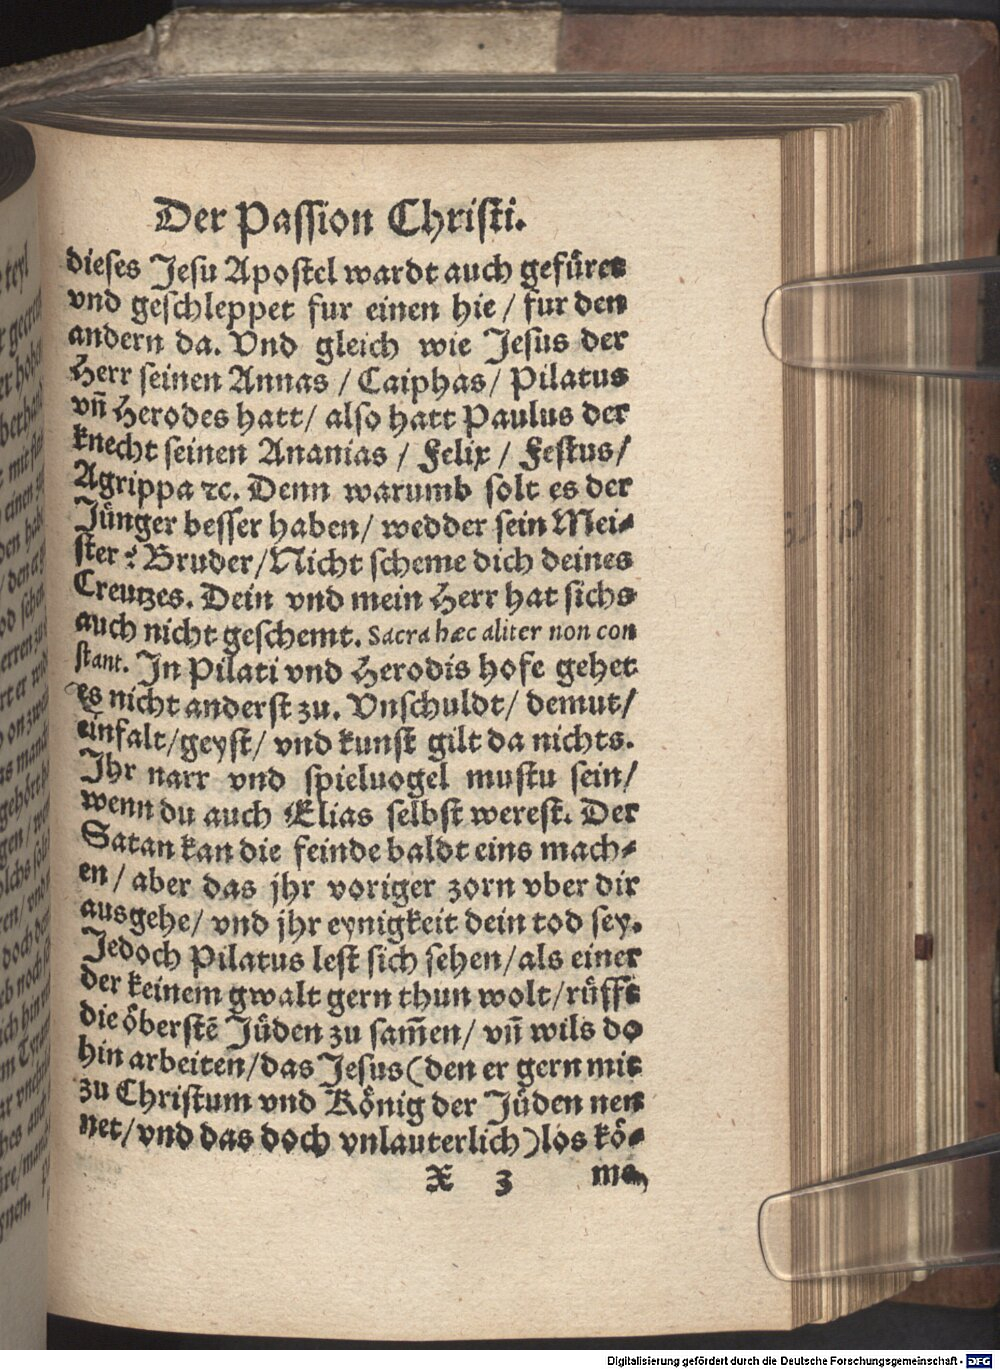 Der Passion Christi.
dieses Jesu Apostel wardt auch gefüret
vnd geschleppet fur einen hie / fur den
andern da. Vnd gleich wie Jesus der
Herr seinen Annas / Caiphas / Pilatus
vñ Herodes hatt / also hatt Paulus der
knecht seinen Ananias / Felix / Festus /
Agrippa ꝛc. Denn warumb solt es der
Jünger besser haben / wedder sein Mei⸗
ster? Bruder / Nicht scheme dich deines
Creutzes. Dein vnd mein Herr hat sichs
auch nicht geschemt. Sacra hæc aliter non con
stant. In Pilati vnd Herodis hofe gehet
es nicht anderst zu. Vnschuldt / demut /
einfalt / geyst / vnd kunst gilt da nichts.
Ihr narr vnd spieluogel mustu sein /
wenn du auch Elias selbst werest. Der
Satan kan die feinde baldt eins mach⸗
en / aber das jhr voriger zorn vber dir
ausgehe / vnd jhr eynigkeit dein tod sey.
Jedoch Pilatus lest sich sehen / als einer
der keinem gwalt gern thun wolt / rüfft
die öberstē Jüden zu sam̄en / vñ wils do
hin arbeiten / das Jesus (den er gern mit
zu Christum vnd König der Jüden nen
net / vnd das doch vnlauterlich) los kö⸗
X 3 me,
Digitalisierung gefördert durch die Deutsche Forschungsgemeinschaft - DFG